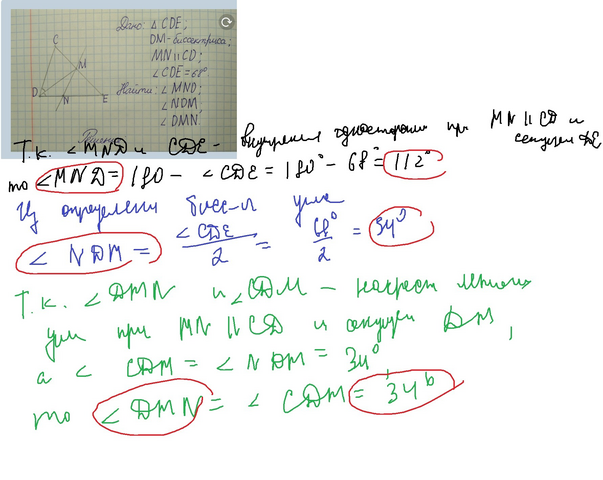 Дано: △ CDE,
DM-биссектриса;
MN || CD;
∠CDE = 68°
Найти: ∠MND;
∠NDM;
∠DMN.
C
M
D
N
E
Т.к. ∠MND и CDE - внутренние односторон при MN || CD и
секущей DE
то ∠MND = 180 - ∠CDE = 180° - 68° = 112°
Из определени бисс-и угла
∠ NDM = ∠CDE/2 = 68°/2 = 34°
Т.к. ∠DMN и ∠CDM - накрест лежащ
углы при MN || CD и секущей DM,
а ∠ CDM = ∠ NDM = 34°
то ∠ DMN = ∠ CDM = 34°